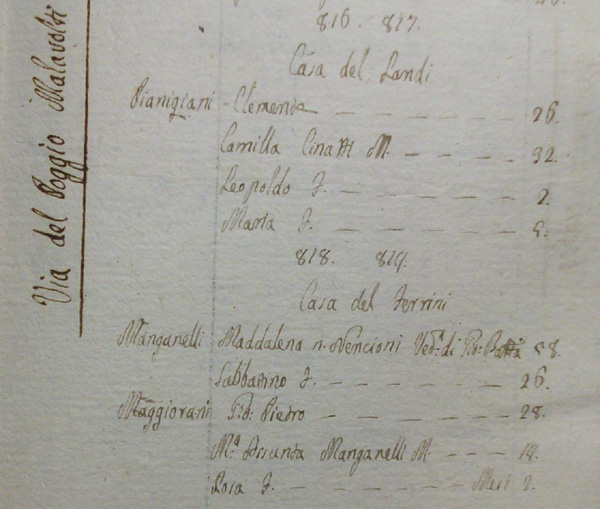 Via del Poggio Malavolti
816. 817.
Casa del Landi
Pianigiani - Clemente — — — — — 26.
Camilla Cinatti M. — — — — 32.
Leopoldo F. — — — — — 2.
Maria F. — — — — — 5.
818. 819.
Casa del Ferrini
Manganelli Maddalena n. Nencioni Ved.ª di Gio: Batta 58.
Sabbatino F. — — — — — 26.
Maggiorani Gio: Pietro — — — — — 28.
M.ª Assunta Manganelli M. — — — 19.
Rosa F. — — — — — Mesi 2.